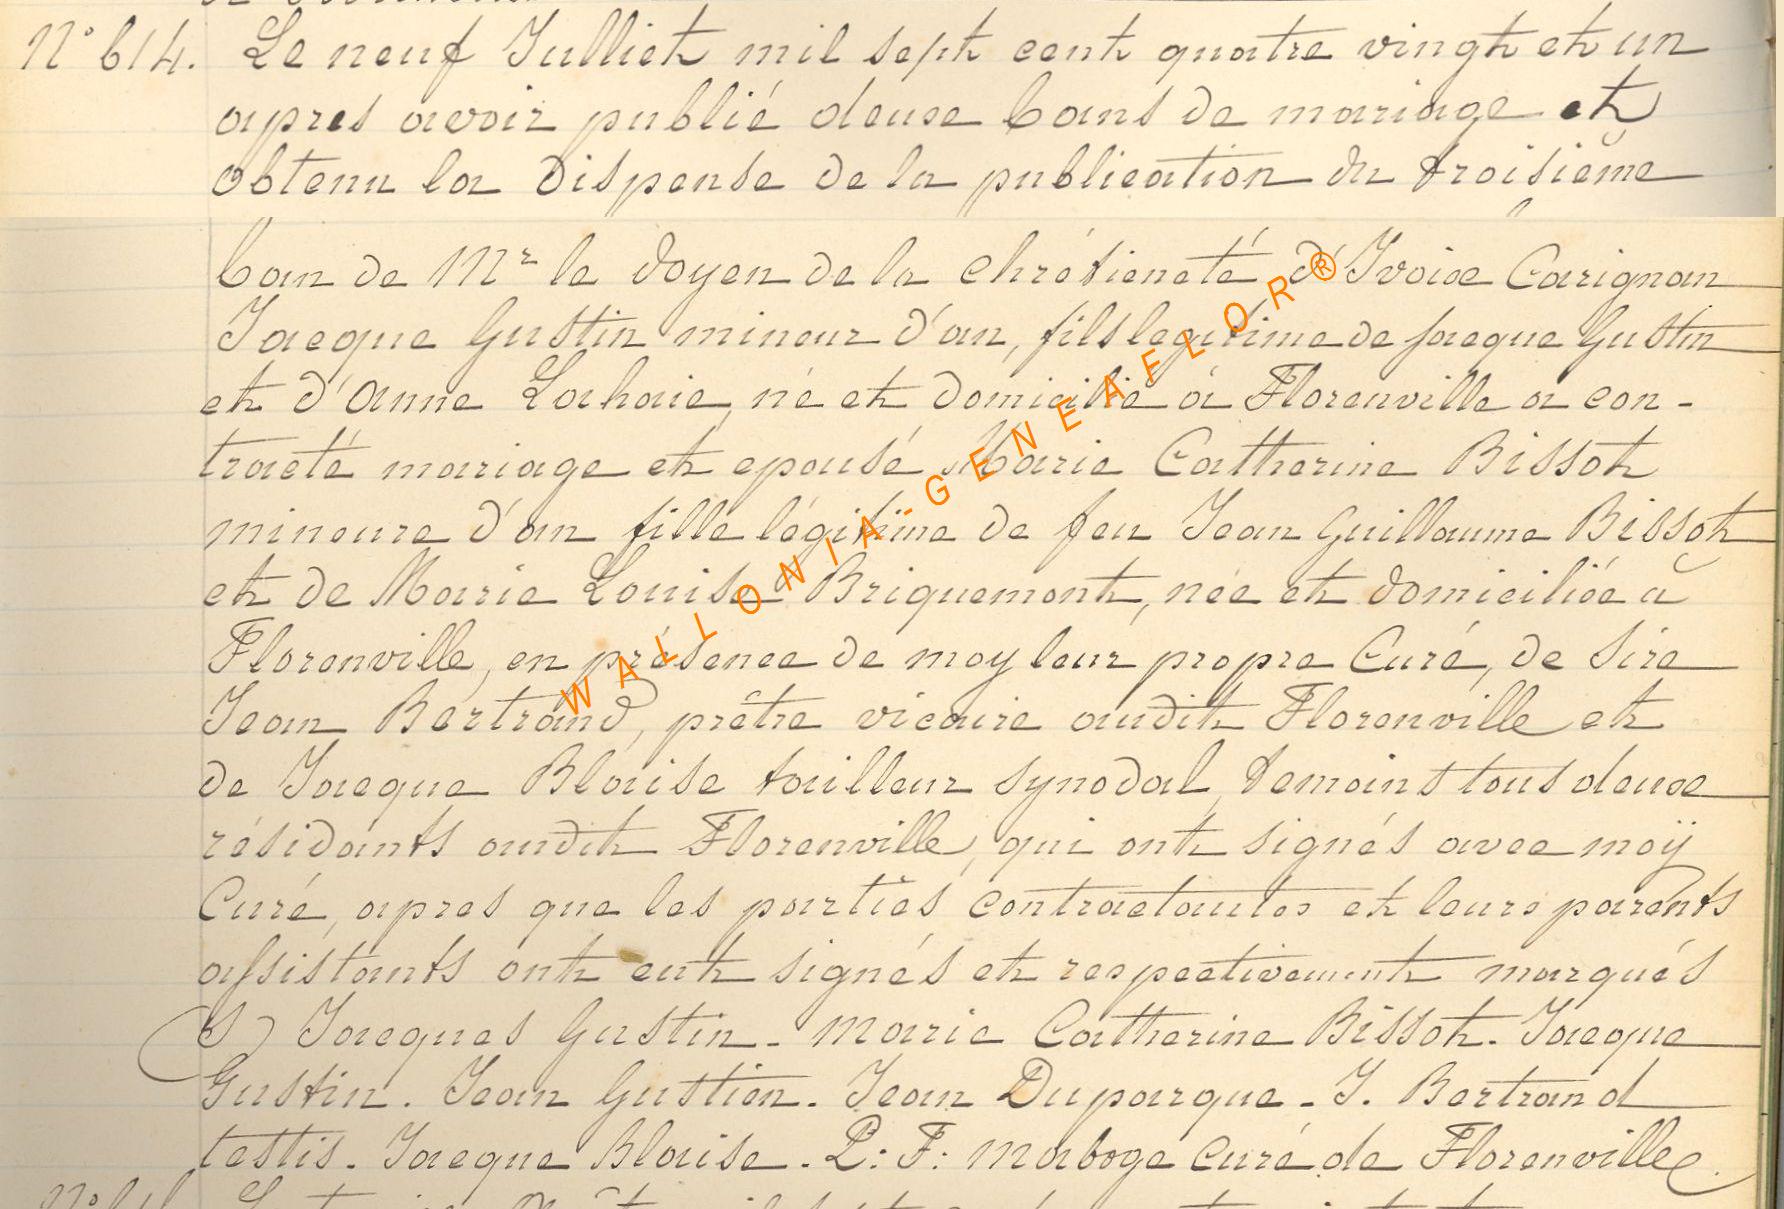 N° 614. Le neuf Julliet mil sept cent quatre vingt et un
apres avoir publié deux bans de mariage et
obtenu la dispense de la publication du troisième
ban de Mr le doyen de la chrétieneté d'Ivoix Carignan
Jacque Gustin mineur d'an, fils legitime de Jacque Gustin
et d'Anne Lahaie, né et domicilié à Florenville a con-
tracté mariage et epousé Marie Catherine Bissot
mineure d'an fille légitime de feu Jean Guillaume Bissot
et de Marie Louise Briquemont, née et domiciliée à
Florenville, en présence de moy leur propre Curé, de Sire
Jean Bertrand, prêtre vicaire audit Florenville et
de Jacque Blaise tailleur synodal, temoins tous deux
résidants audit Florenville, qui ont signés avec moÿ
Curé, apres que les parties contractantes et leurs parents
assistants ont eut signés et respectivement marqués
(S) Jacques Gustin. Marie Catherine Bissot. Jacque
Gustin. Jean Gustien. Jean Duparque. J. Bertrand
testis. Jacque Blaise. P: F: Maboge curé de Florenville
WALLONIA-GENEAFLOR®